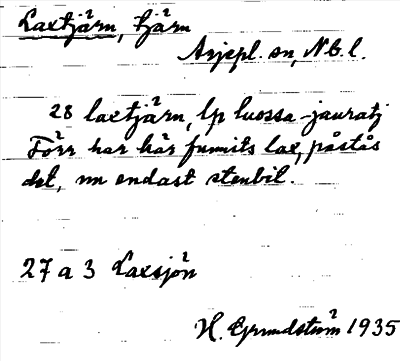 Laxtjärn, tjärn
Arjepl. sn, Nb. l.
28 laxtjärn, lp luossa-jauratj
Förr har här funnits lax, påstås
det, nu endast stenbit.
27 a 3 Laxsjön
H. Grundström 1935